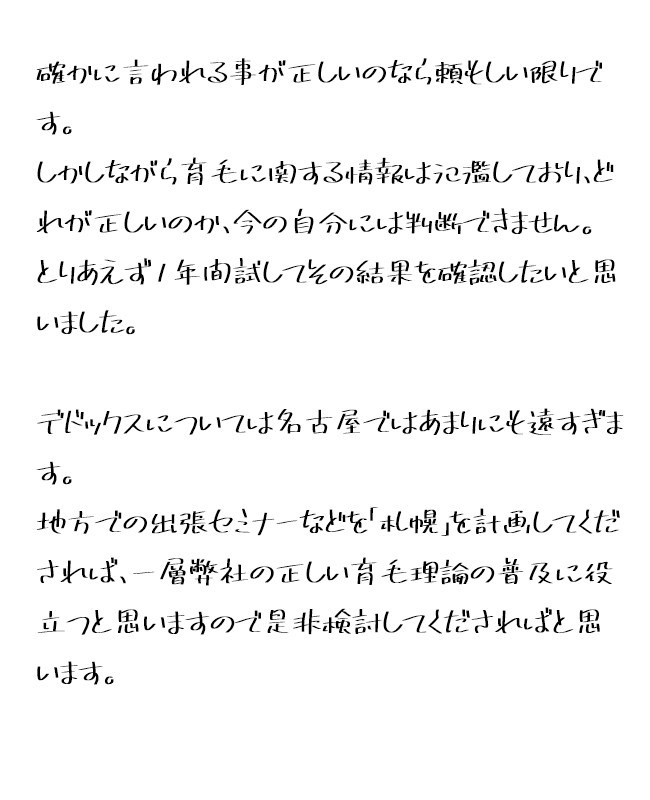 確かに言われる事が正しいのなら頼もしい限りで
す。
しかしながら育毛に関する情報は氾濫しており、ど
れが正しいのか、今の自分には判断できません。
とりあえず1年間試してその結果を確認したいと思
いました。
デドックスについては名古屋ではあまりにも遠すぎま
す。
地方での出張セミナーなどを「札幌」を計画してくだ
されば、一層弊社の正しい育毛理論の普及に役
立つと思いますので是非検討してくださればと思
います。